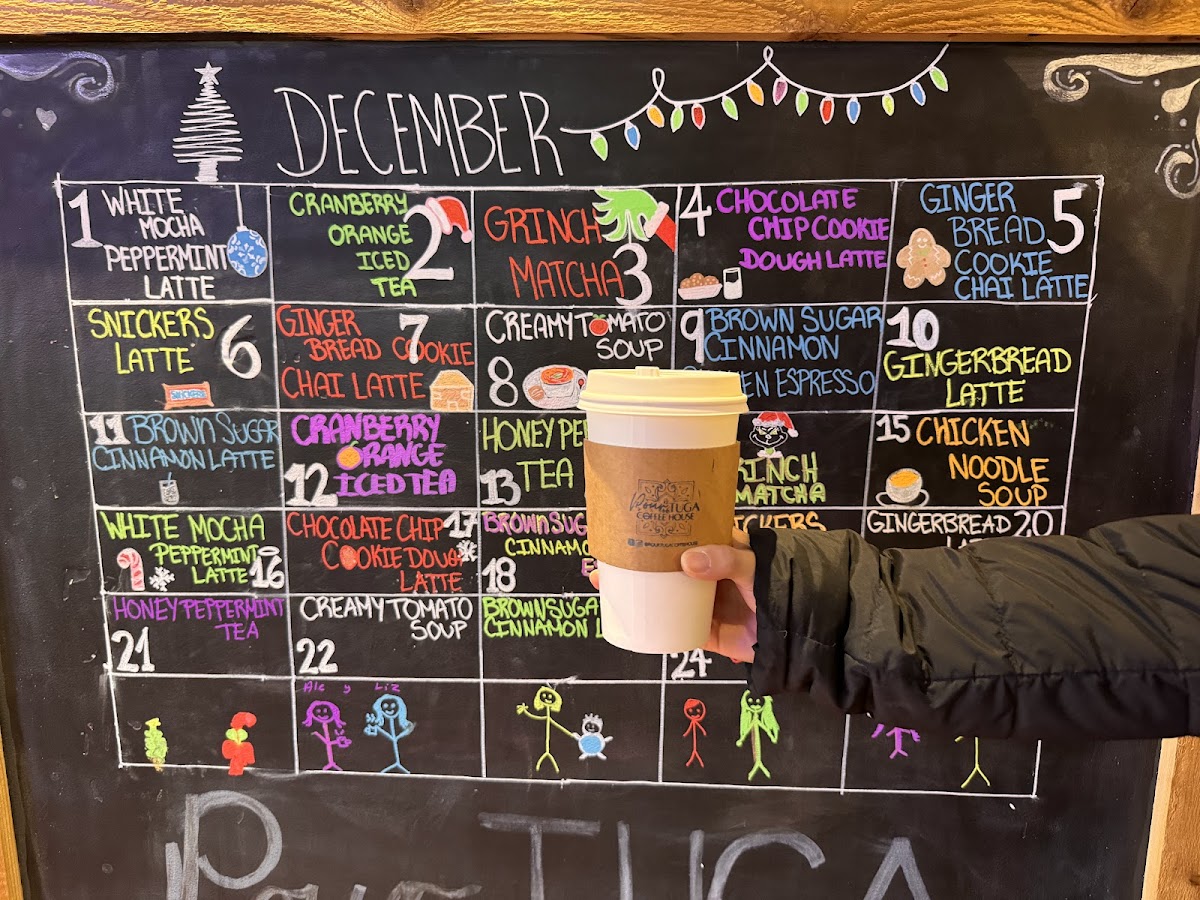 DECEMBER
1 WHITE
MOCHA
PEPPERMINT
LATTE
CRANBERRY
ORANGE
ICED
TEA
2
GRINCH
MATCHA
3
4 CHOCOLATE
CHIP COOKIE
DOUGH LATTE
GINGER
BREAD
COOKIE
CHAI LATTE
5
SNICKERS
LATTE
6
SNICKERS
GINGER
BREAD COOKIE
CHAI LATTE
7
CREAMY TOMATO
SOUP
8
9 BROWN SUGAR
CINNAMON
ESPRESSO
10
GINGERBREAD
LATTE
11 BROWN SUGAR
CINNAMON LATTE
CRANBERRY
ORANGE
12 ICED TEA
HONEY
TEA
13
GRINCH
MATCHA
15 CHICKEN
NOODLE
SOUP
WHITE MOCHA
PEPPERMINT
LATTE 16
CHOCOLATE CHIP 17
COOKIE DOUGH
LATTE
BROWN
18
GINGERBREAD 20
HONEY PEPPERMINT
TEA
21
CREAMY TOMATO
SOUP
22
BROWN SUGAR
CINNAMON
24
TUGA
COFFEE HOUSE
Liz
TUGA